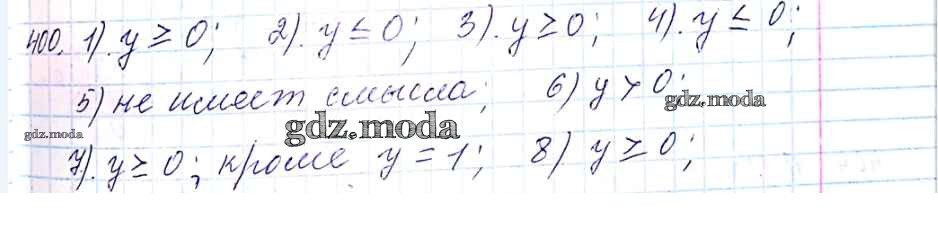 400. 1). y ≥ 0; 2). y ≤ 0; 3). y ≥ 0; 4). y ≤ 0;
5) не имеет смысла; 6) y > 0;
gdz.moda
gdz.moda
gdz.moda
7). y ≥ 0; кроме y = 1; 8) y ≥ 0;